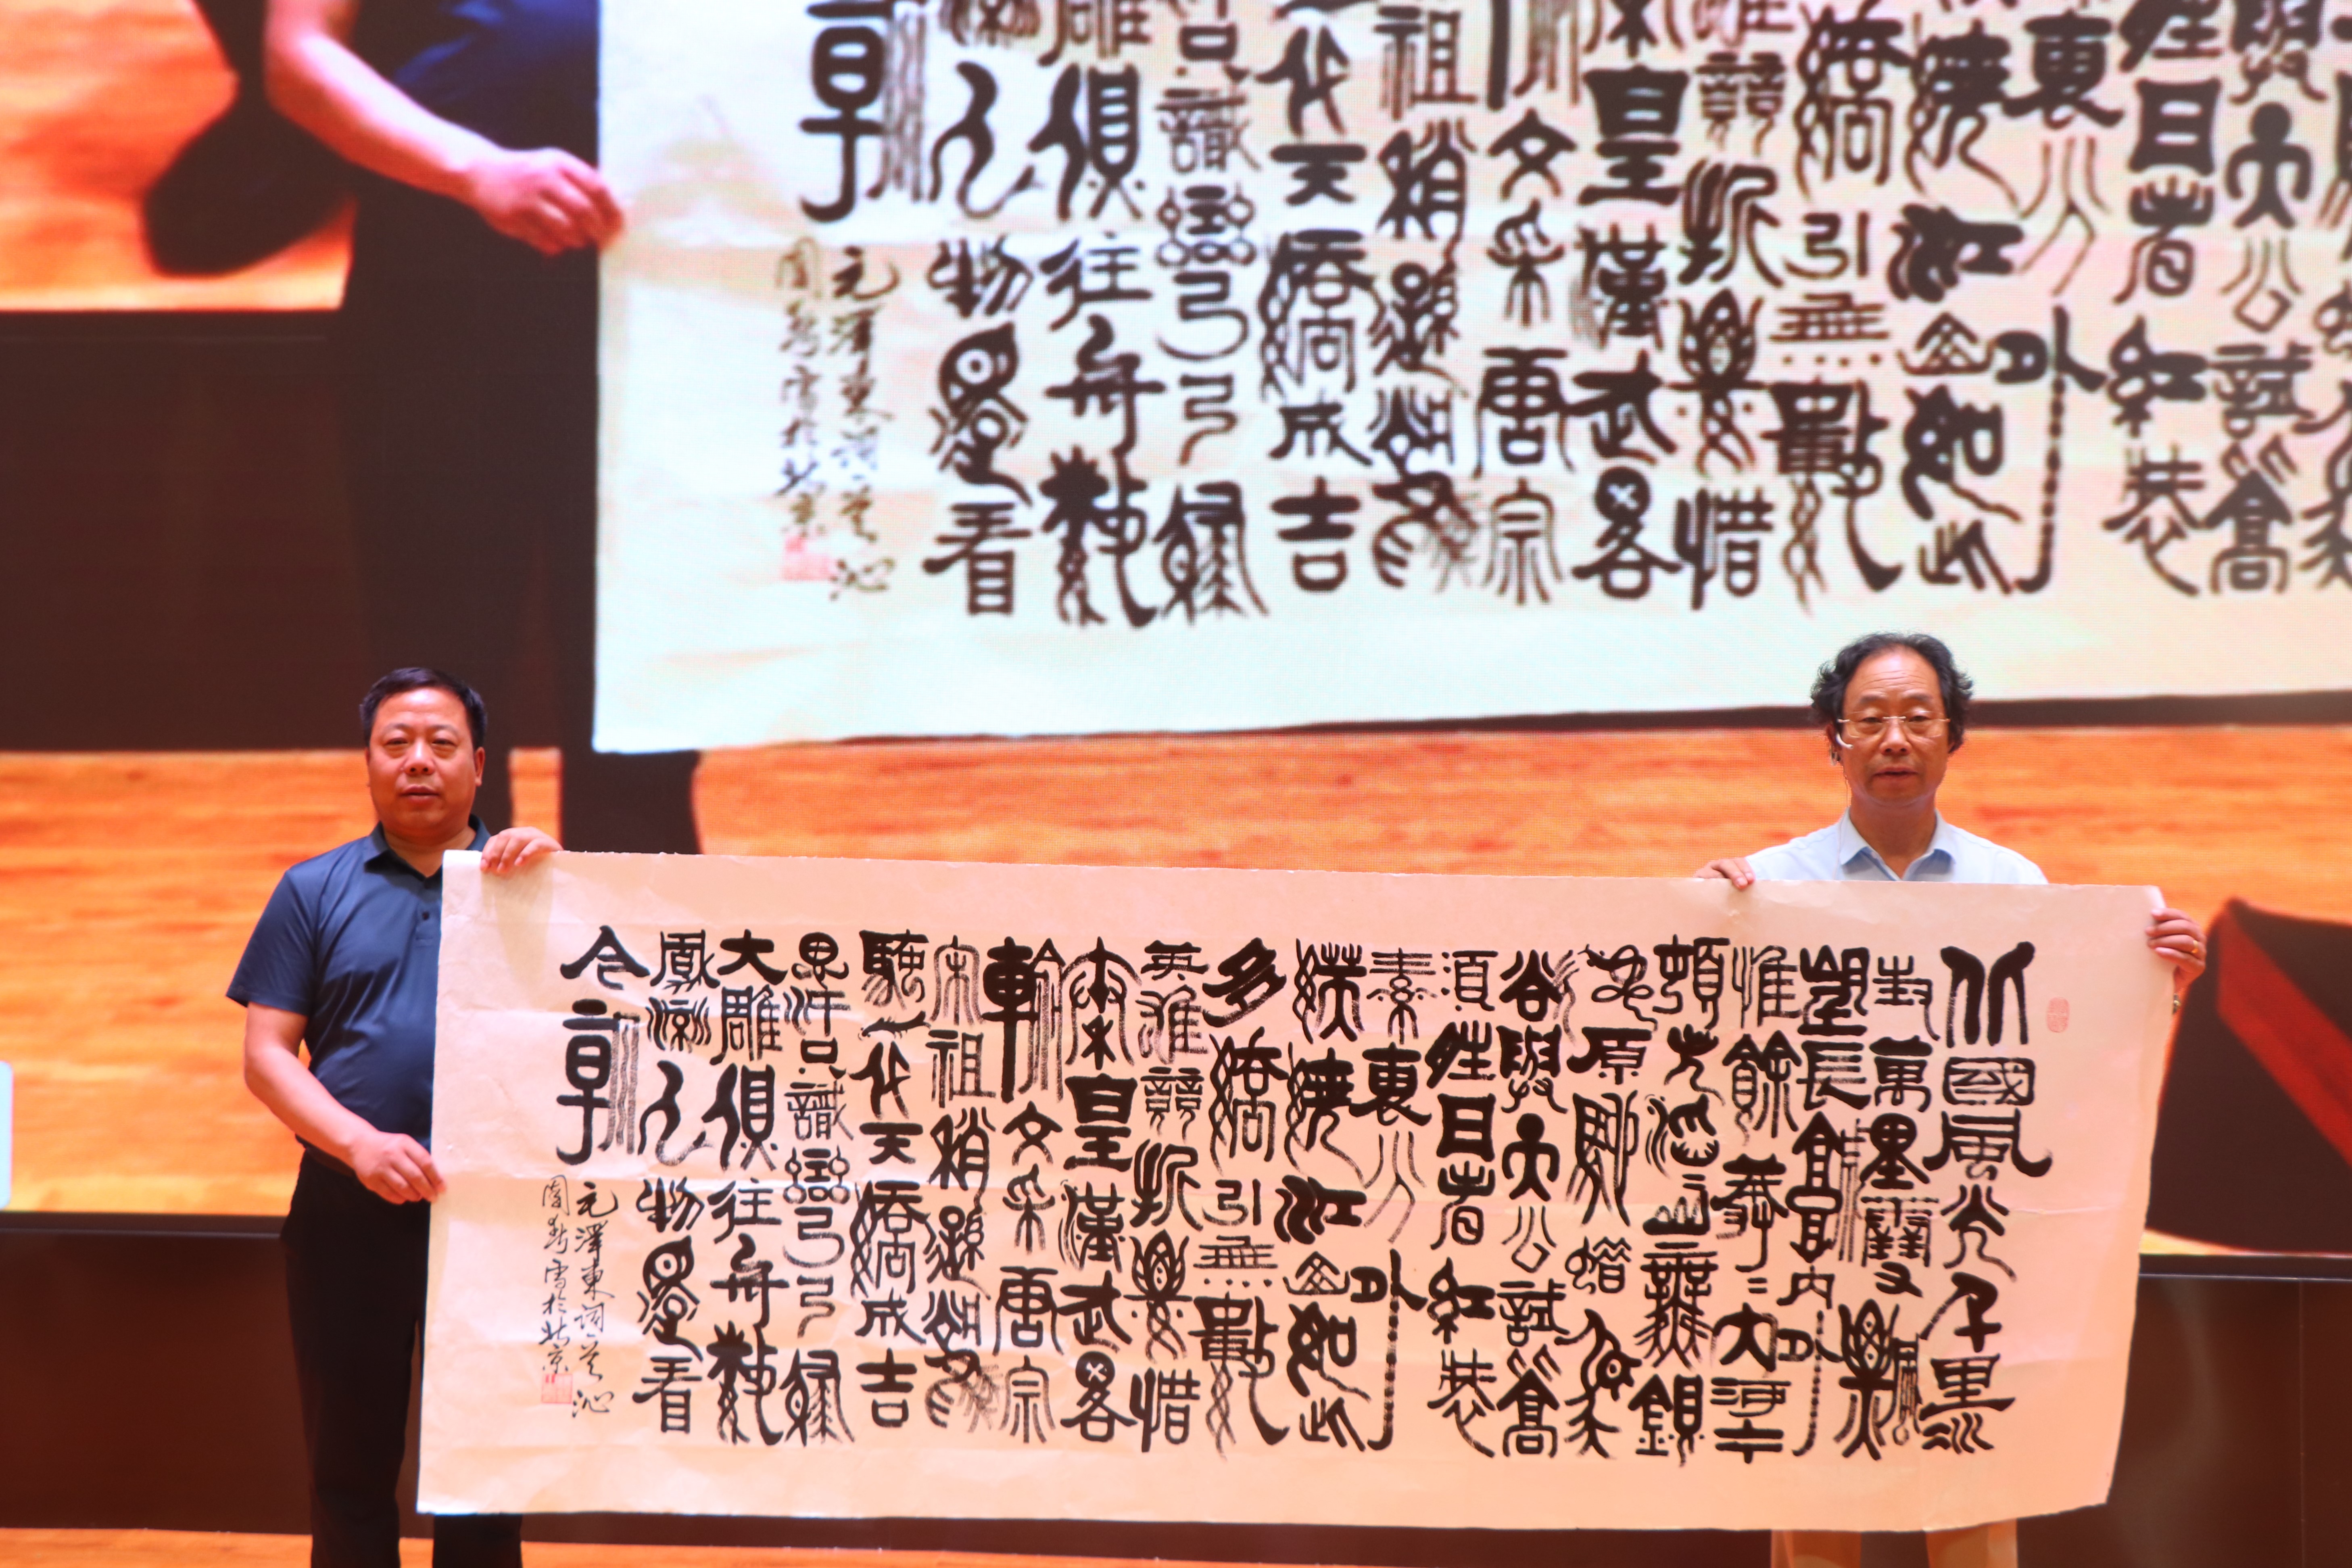 北國風光千里冰
封萬里雪飄
望長城内外
惟餘莽〻大河上下
頓失滔〻山舞銀
蛇原馳蠟象欲
與天公試高
須晴日看紅裝
素裹分外
妖嬈江山如此
多嬌引無數
英雄競折腰惜
秦皇漢武略
輸文采唐宗
宋祖稍遜風騷
一代天驕成吉
思汗只識彎弓射
大雕俱往矣數
風流人物還看
今朝
毛澤東詞一首 沁
園春雪於北京